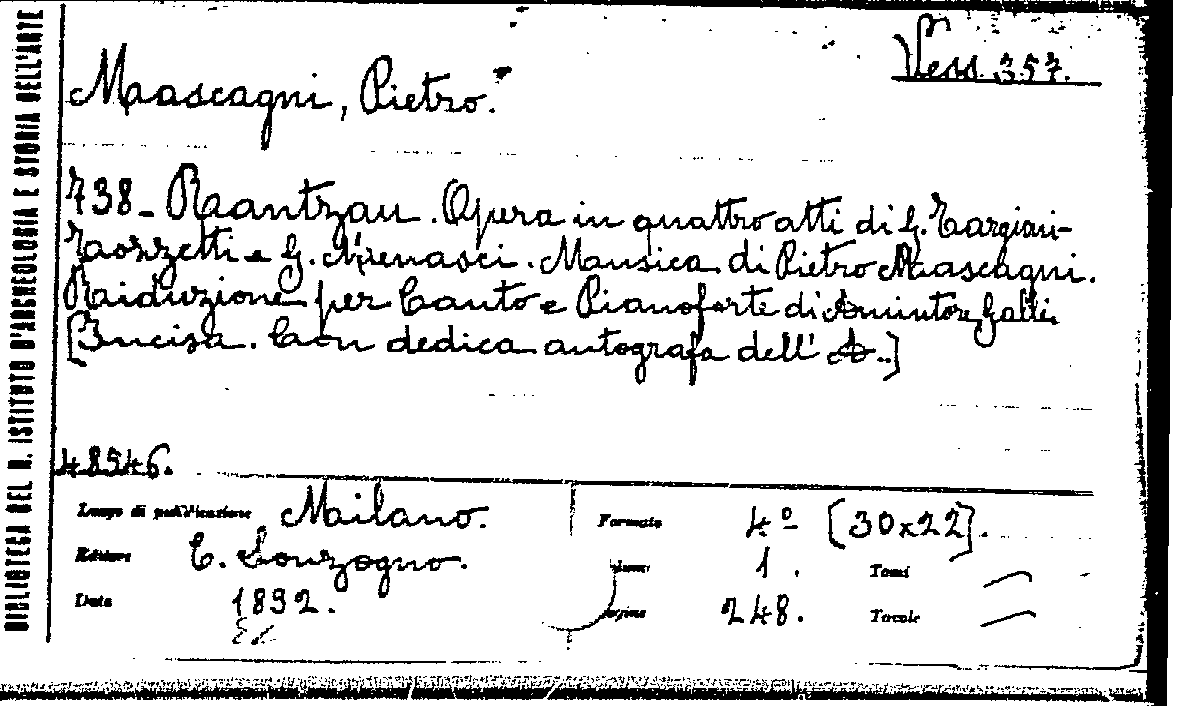 BIBLIOTECA DEL R. ISTITUTO D'ARCHEOLOGIA E STORIA DELL'ARTE
Vess. 357.
Mascagni, Pietro.
738 - Rantzau. Opera in quattro atti di G. Targioni-
Tozzetti e G. Menasci. Musica di Pietro Mascagni.
Riduzione per Canto e Pianoforte di Amintore Galli.
[Incisa. Con dedica autografa dell' A..]
48546.
Luogo di pubblicazione Milano. Formato 4º [30x22].
Editore E. Sonzogno. 1. Tomi —
Data 1892. Pagine 248. Tavole —